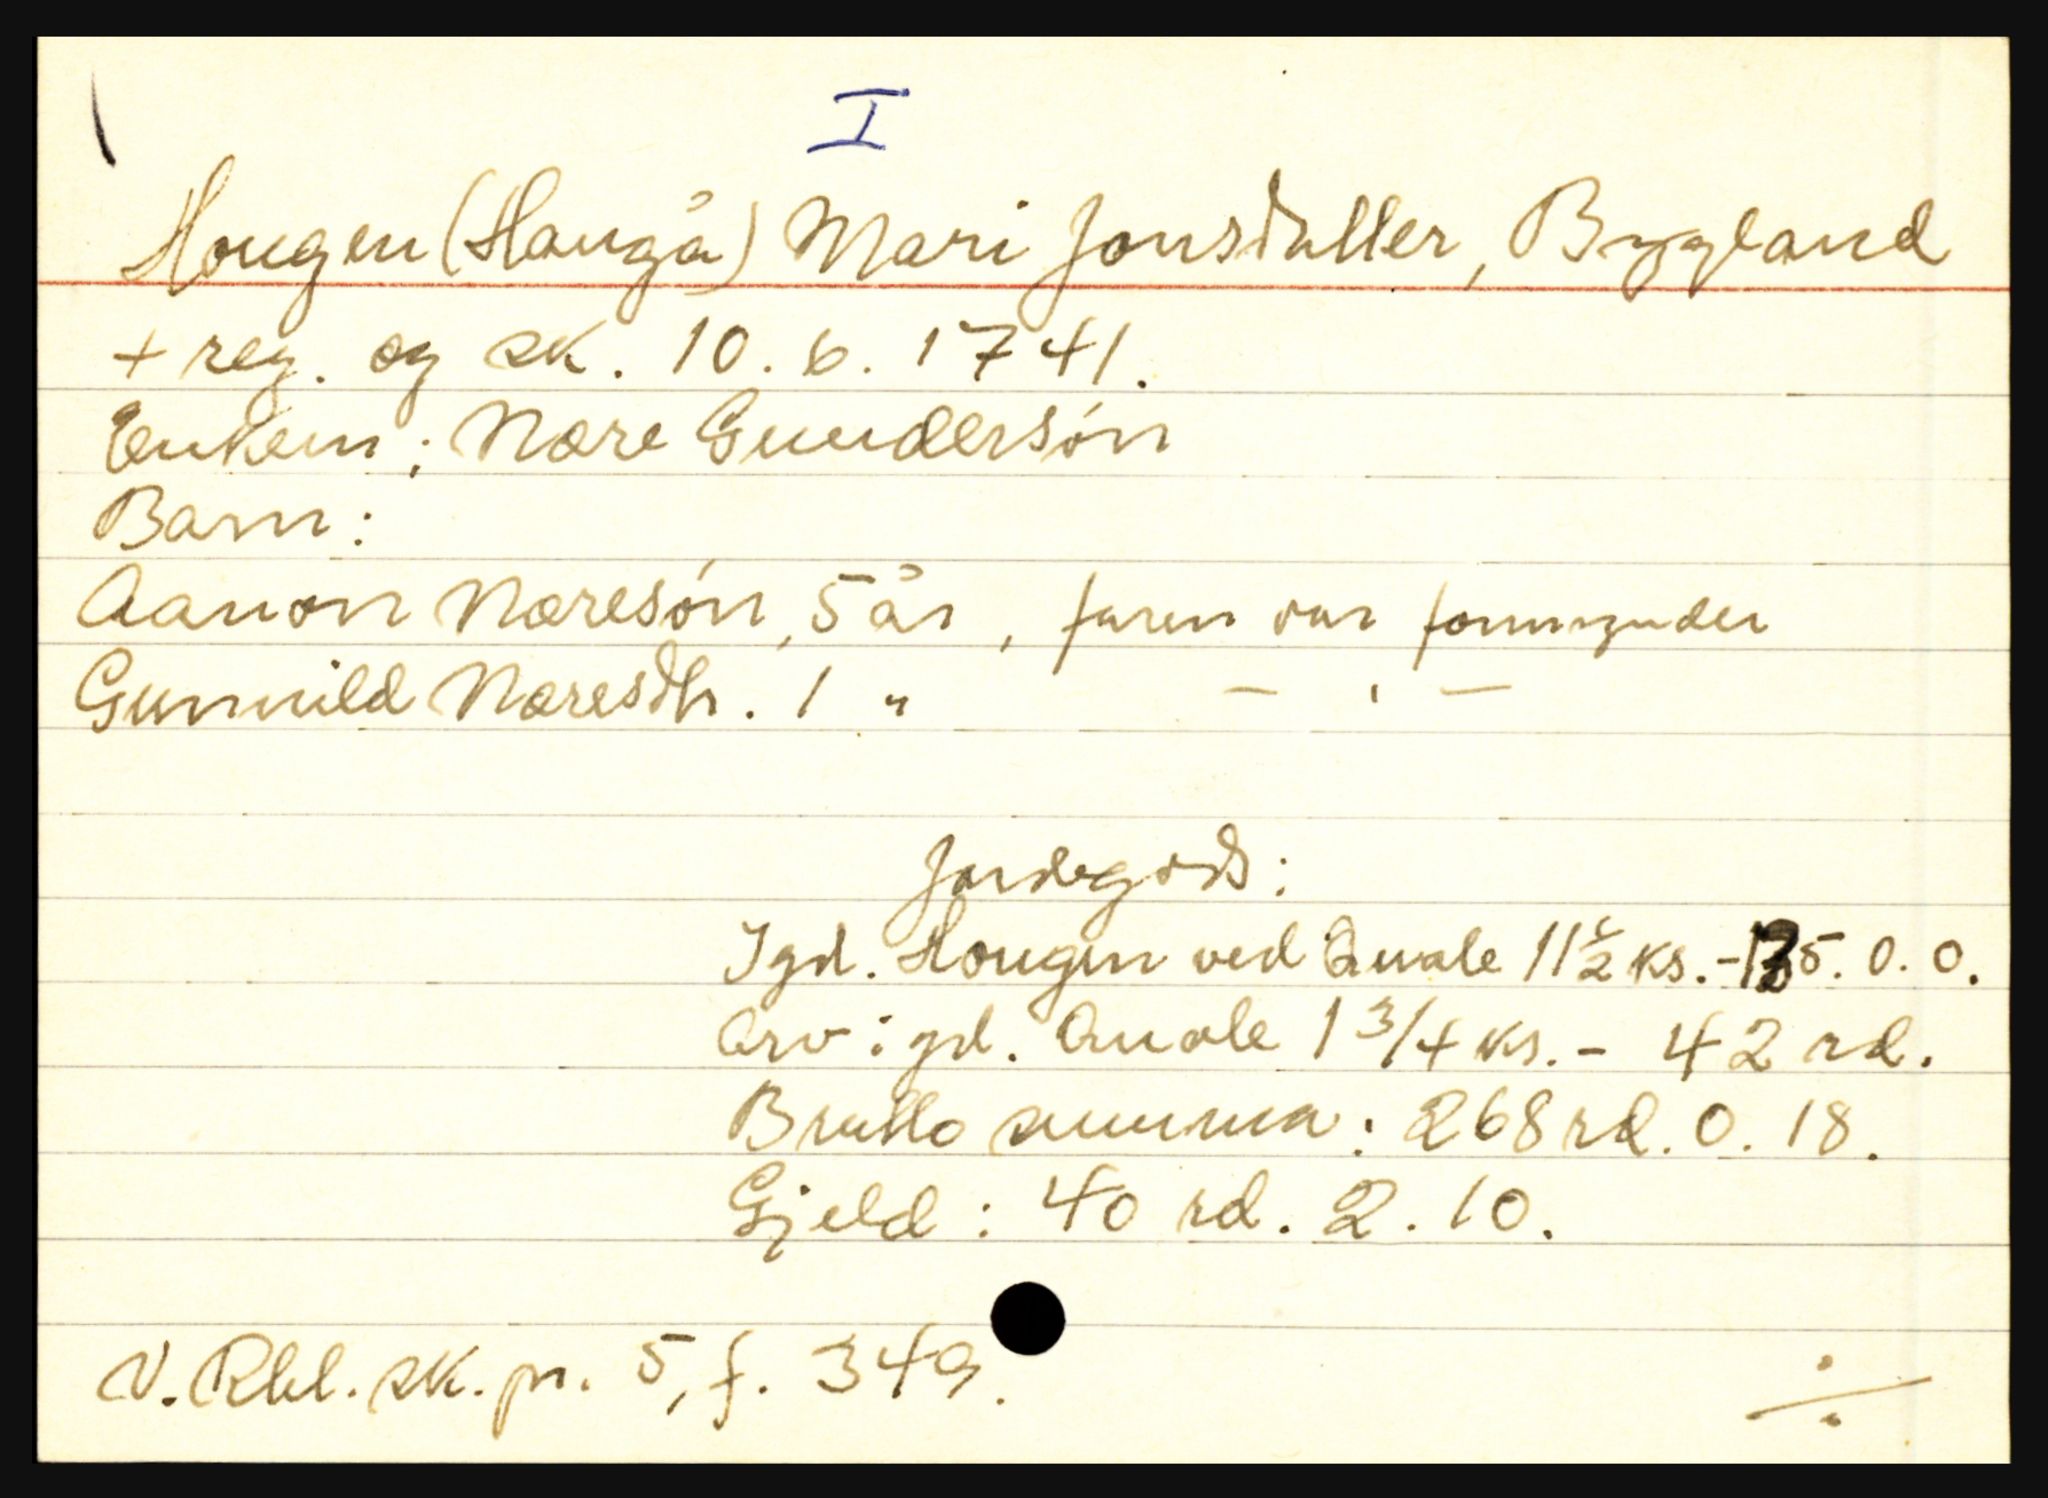 I
Hougen (Haugå) Mari Jonsdatter, Bygland
+ reg. og sk. 10. 6. 1741.
Enkem: Nære Gundersön
Barn:
Aanon Næresön, 5 år, faren var formynder
Gunnild Næresdtr. 1 " — ' —
Jordegods:
I gd. Hougen ved Quale 11½ ks. - 0. 0.
Arv i gd. Quale 1 3/4 ks. - 42 rd.
Brutto summa: 268 rd. 0. 18.
Gjeld: 40 rd. 2. 10.
V. Rbl. sk. pr. 5, f. 349.